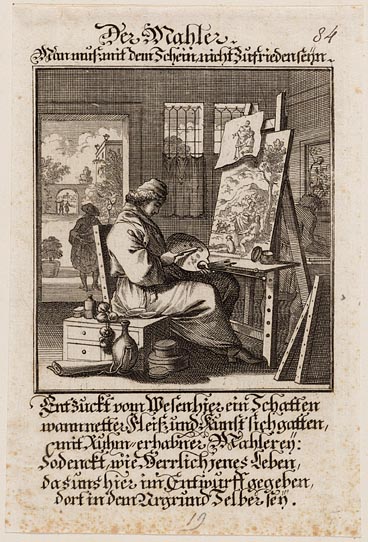 Der Mahler.
84
Man mus mit dem Schein, nicht Zufrieden seÿn.
Entzückt vom Wesen hier ein Schatten
wann netter Fleiß und Kunst sich gatten,
mit Rühm-erhabner Mahlereÿ:
So denckt, wie Herrlich jenes Leben,
das uns hier im Entwurff gegeben,
dort in dem Urgrund Selber seÿ.
19